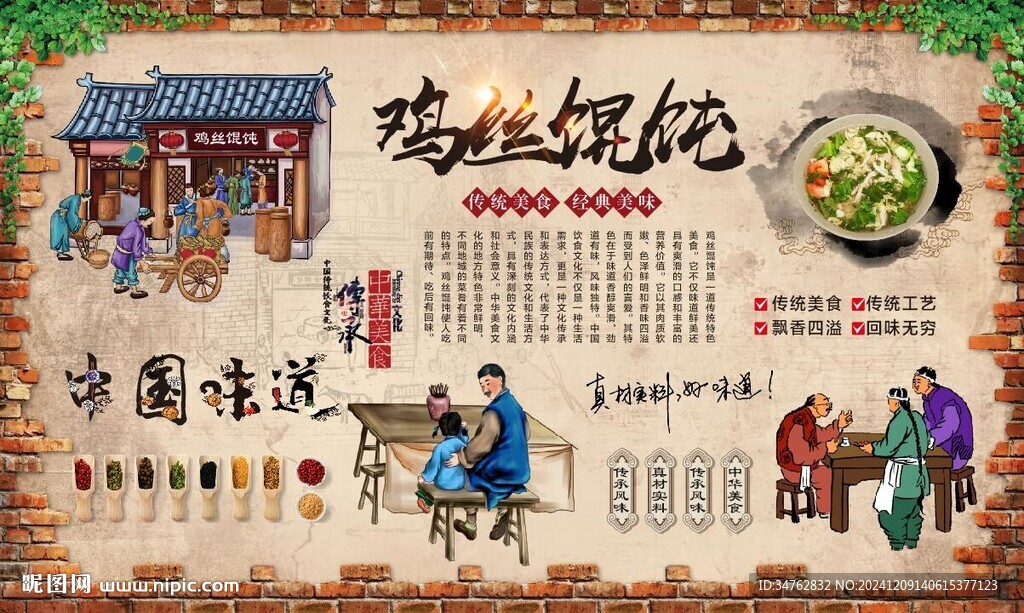 鸡丝馄饨
鸡丝馄饨
传统美食 经典美味
鸡丝馄饨是一道传统特色
美食。它不仅味道鲜美还
具有爽滑的口感和丰富的
营养价值。它以其肉质软
嫩、色泽鲜明和香味四溢
而受到人们的喜爱。其特
色在于味道香醇爽滑，劲
道有味，风味独特。中国
饮食文化不仅是一种生活
需求，更是一种文化传承
和表达方式，代表了中华
民族的传统文化和生活方
式，具有深刻的文化内涵
和社会意义。中华美食文
化的地方特色非常鲜明，
不同地域的菜肴有着不同
的特点。鸡丝馄饨使人吃
前有期待、吃后有回味。
中华美食
文化
传承
中国传统饮食文化
传统美食
传统工艺
飘香四溢
回味无穷
中国味道
真材实料,好味道!
传承风味
真材实料
传承风味
中华美食
昵图网 www.nipic.com
ID:34762832 NO:20241209140615377123